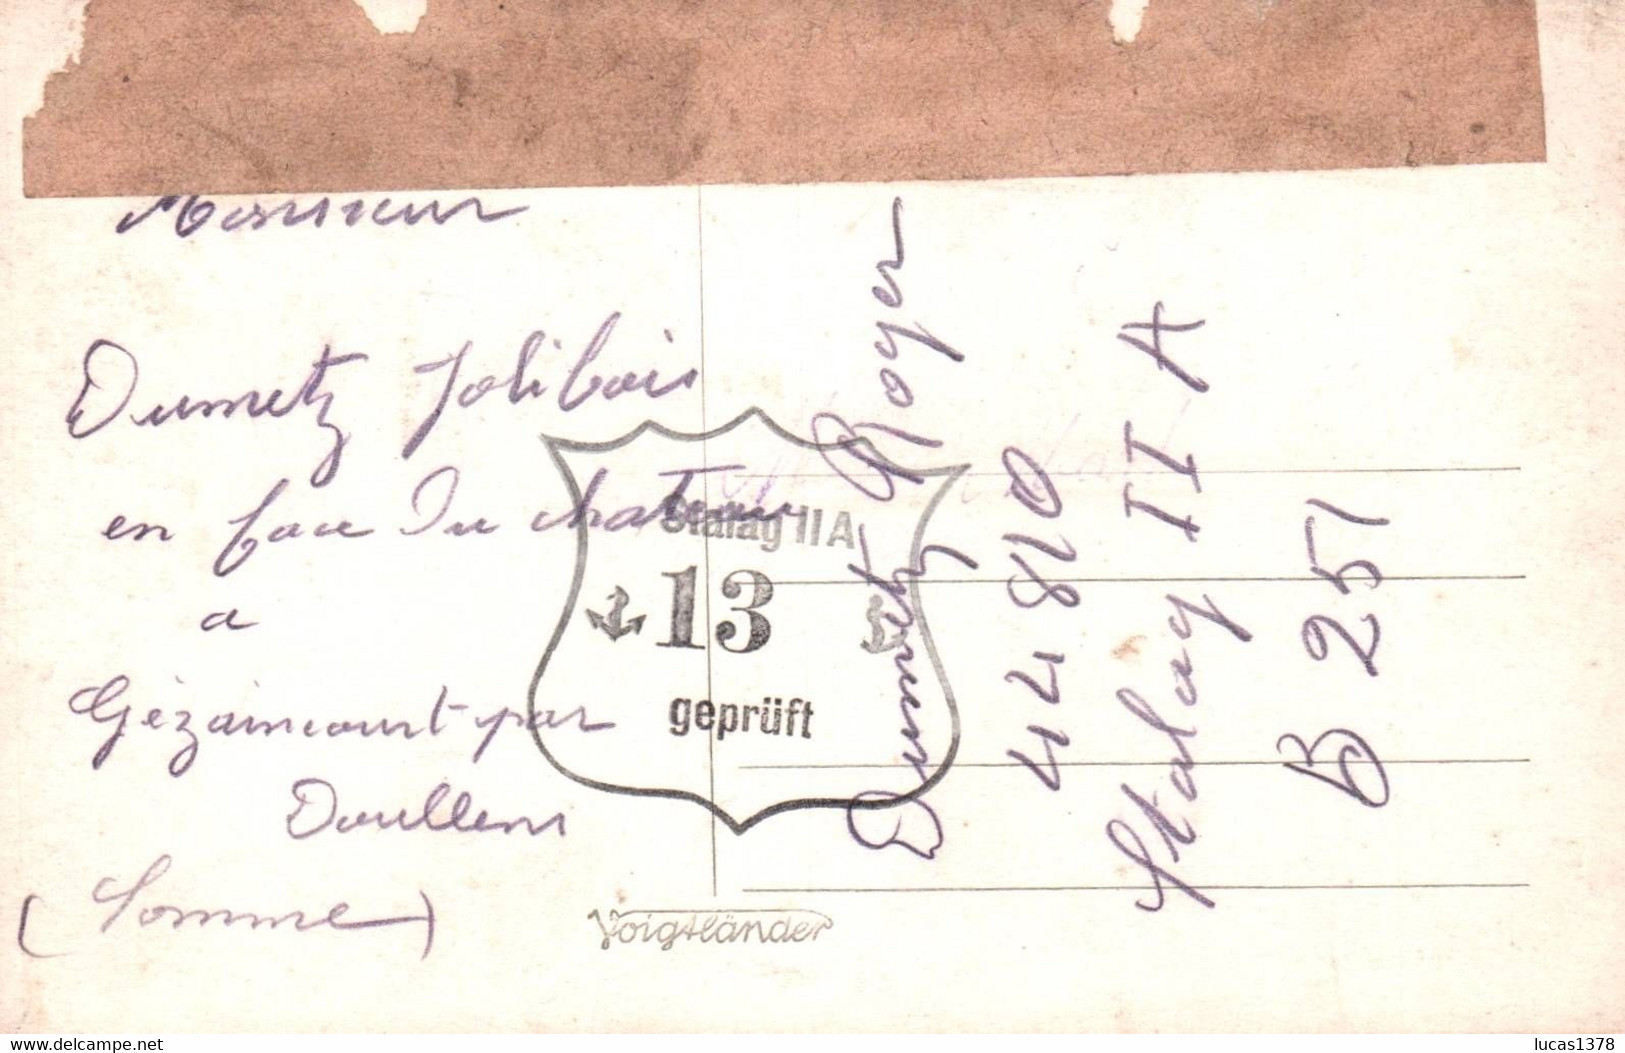 Monsieur
Dumetz Jolibois
en face du chateau
a
Gézaincourt par
Doullens
(Somme)
Stalag II A
13
geprüft
Dumetz Roger
44810
Stalag II A
B 251
Voigtländer
www.delcampe.net
lucas1378